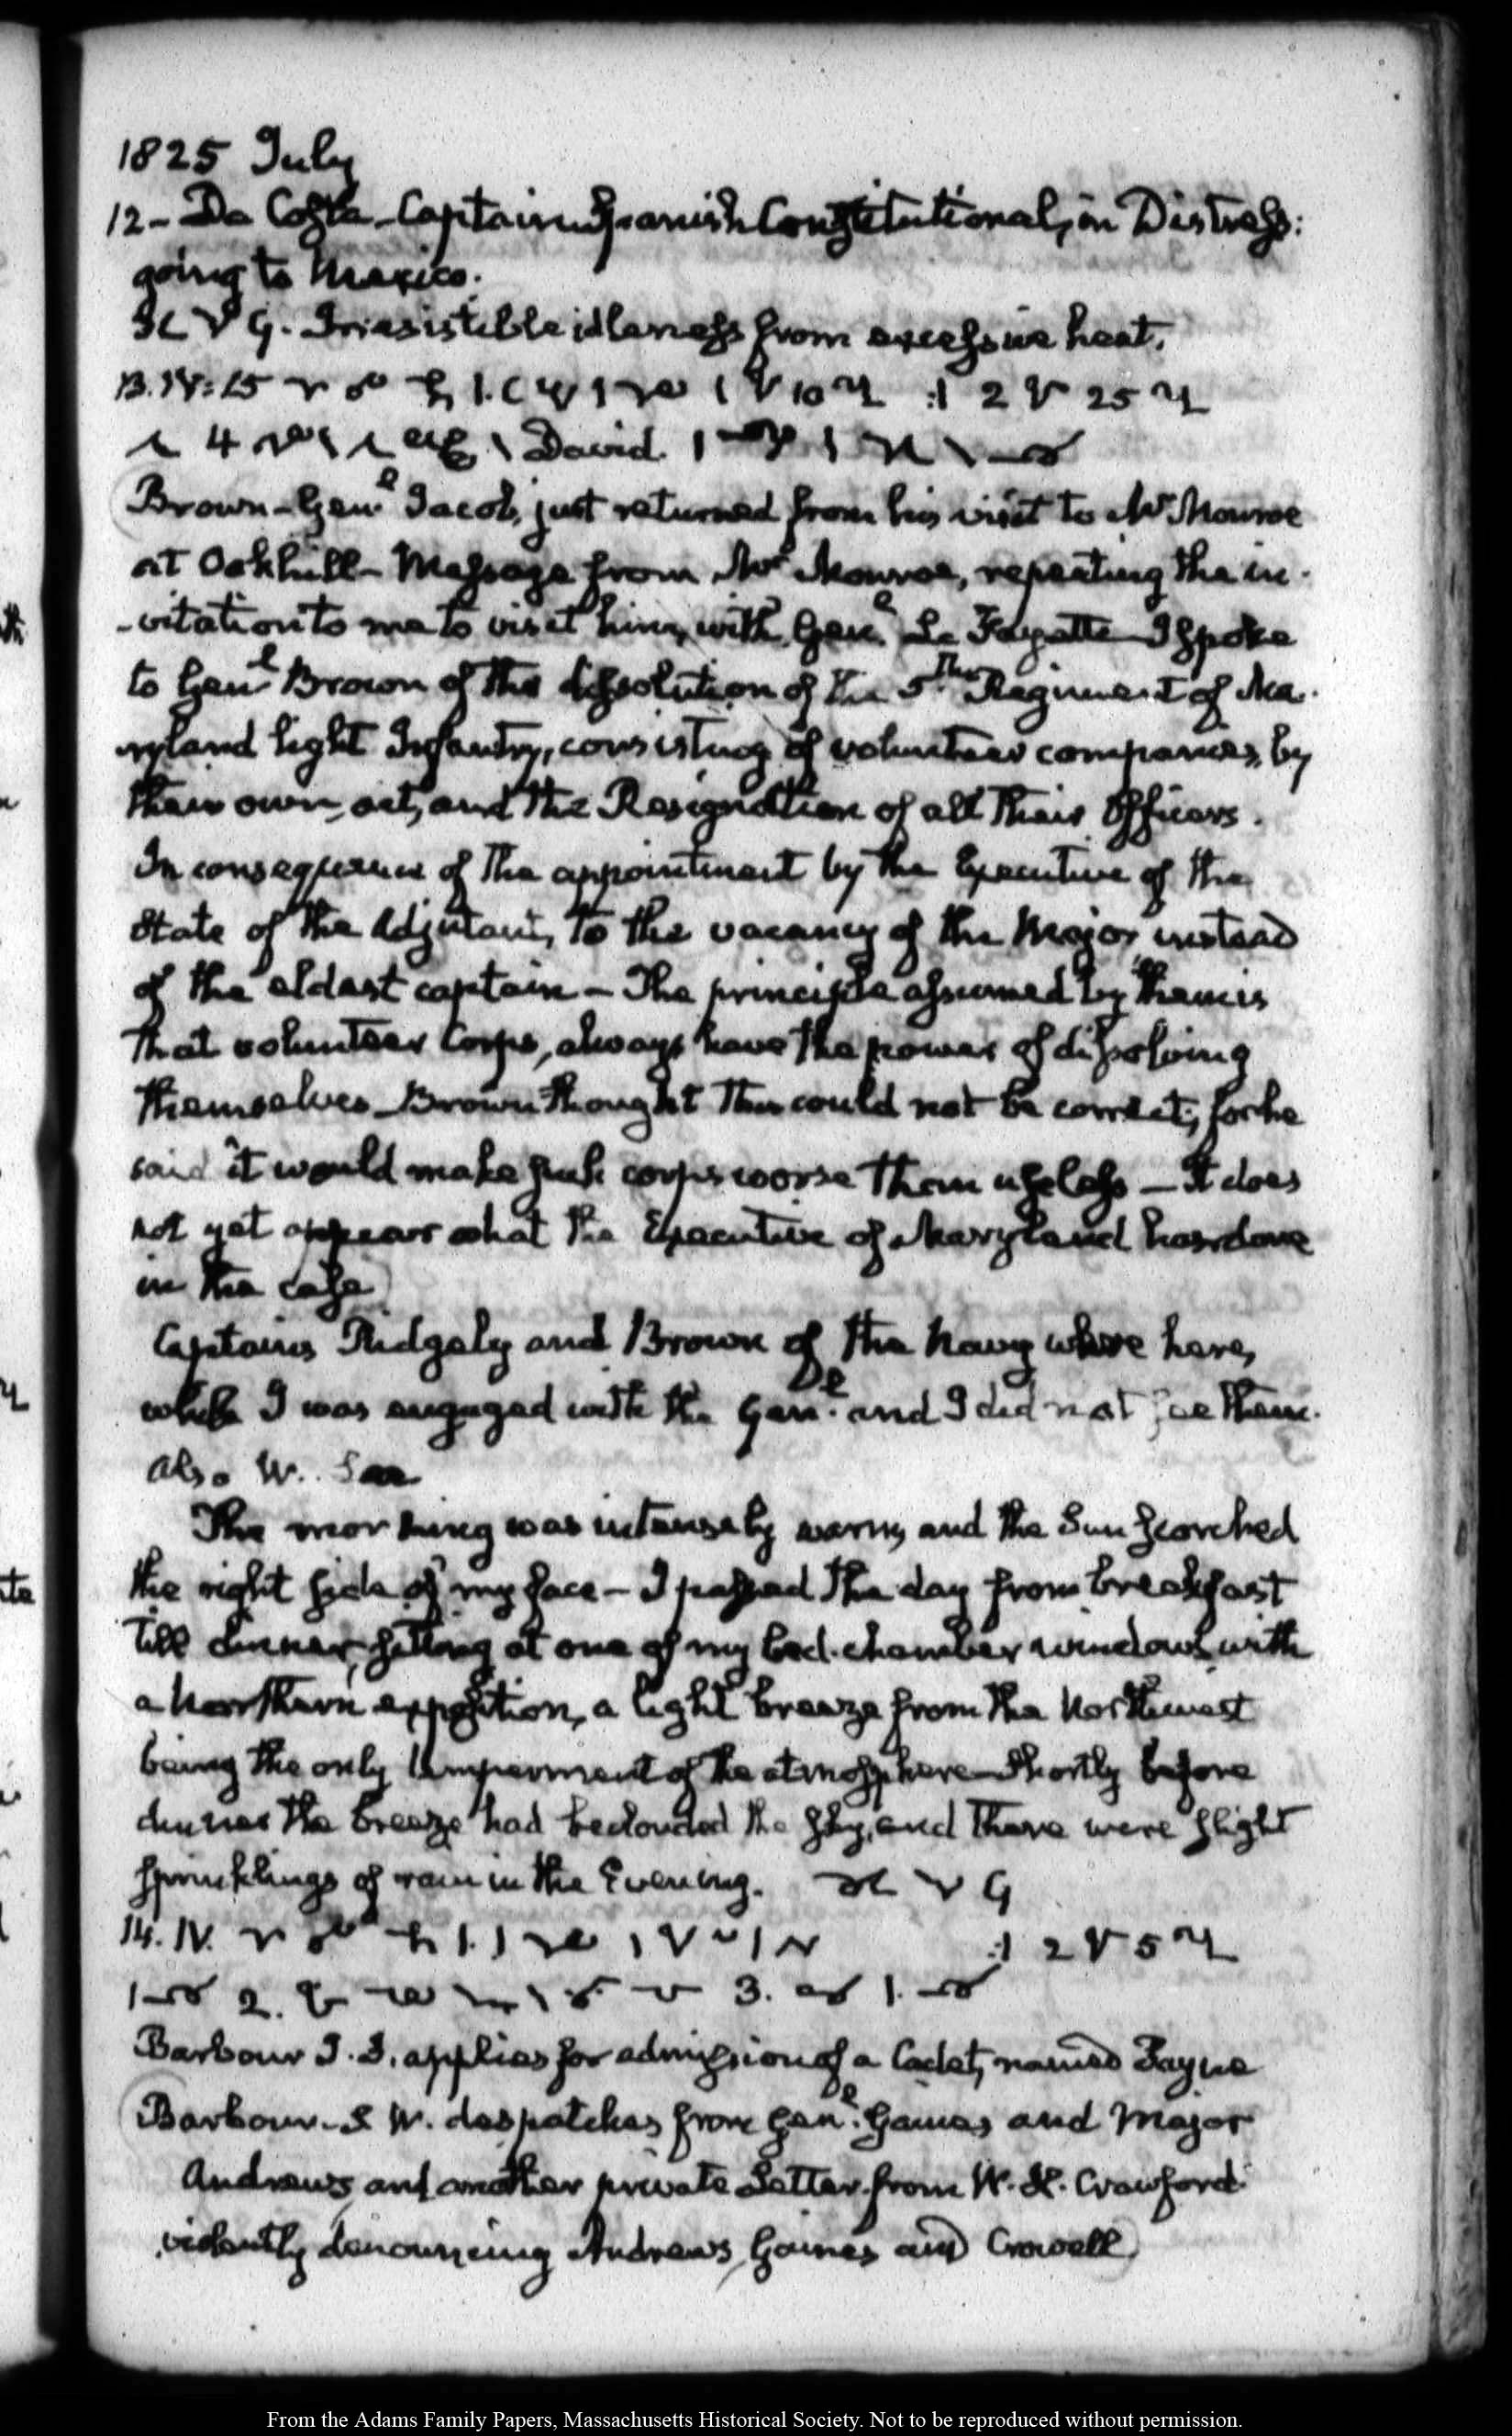 1825 July
12 - Da Costa - Captain Spanish Constitutional, in Distress:
going to Mexico.
Irresistible idleness from excessive heat.
13. IV: 15 10 2 25
4 David.
Brown - Genl Jacob, just returned from his visit to Mr Monroe
at Oakhill - Message from Mr Monroe, repeating the in-
-vitation to me to visit him, with Genl La Fayette - I spoke
to Genl Brown of the dissolution of the 5th Regiment of Ma-
ryland light Infantry, consisting of volunteer companies, by
their own act, and the Resignation of all their Officers.
In consequence of the appointment by the Executive of the
State of the Adjutant, to the vacancy of the Major, instead
of the eldest captain - The principle assumed by them is
that volunteer Corps, always have the power of dissolving
themselves - Brown thought this could not be correct; for he
said it would make such corps worse than useless - It does
not yet appear what the Executive of Maryland has done
in the case
Captains Ridgely and Brown of the Navy where here,
while I was engaged with the Genl. and I did not see them.
also W. Lee
The morning was intensely warm, and the Sun scorched
the right side of my face - I passed the day from breakfast
till dinner, sitting at one of my bed-chamber windows with
a Northern exposition, a light breeze from the Northwest
being the only temperament of the atmosphere - Shortly before
dinner the breeze had beclouded the sky, and there were slight
sprinklings of rain in the Evening.
14. IV. 2 5
2. 3.
Barbour J. S. applies for admission of a Cadet, named Payne
Barbour - S W. despatches from Genl. Gaines and Major
Andrews and another private Letter from W. H. Crawford
violently denouncing Andrews, Gaines and Crowell
From the Adams Family Papers, Massachusetts Historical Society. Not to be reproduced without permission.